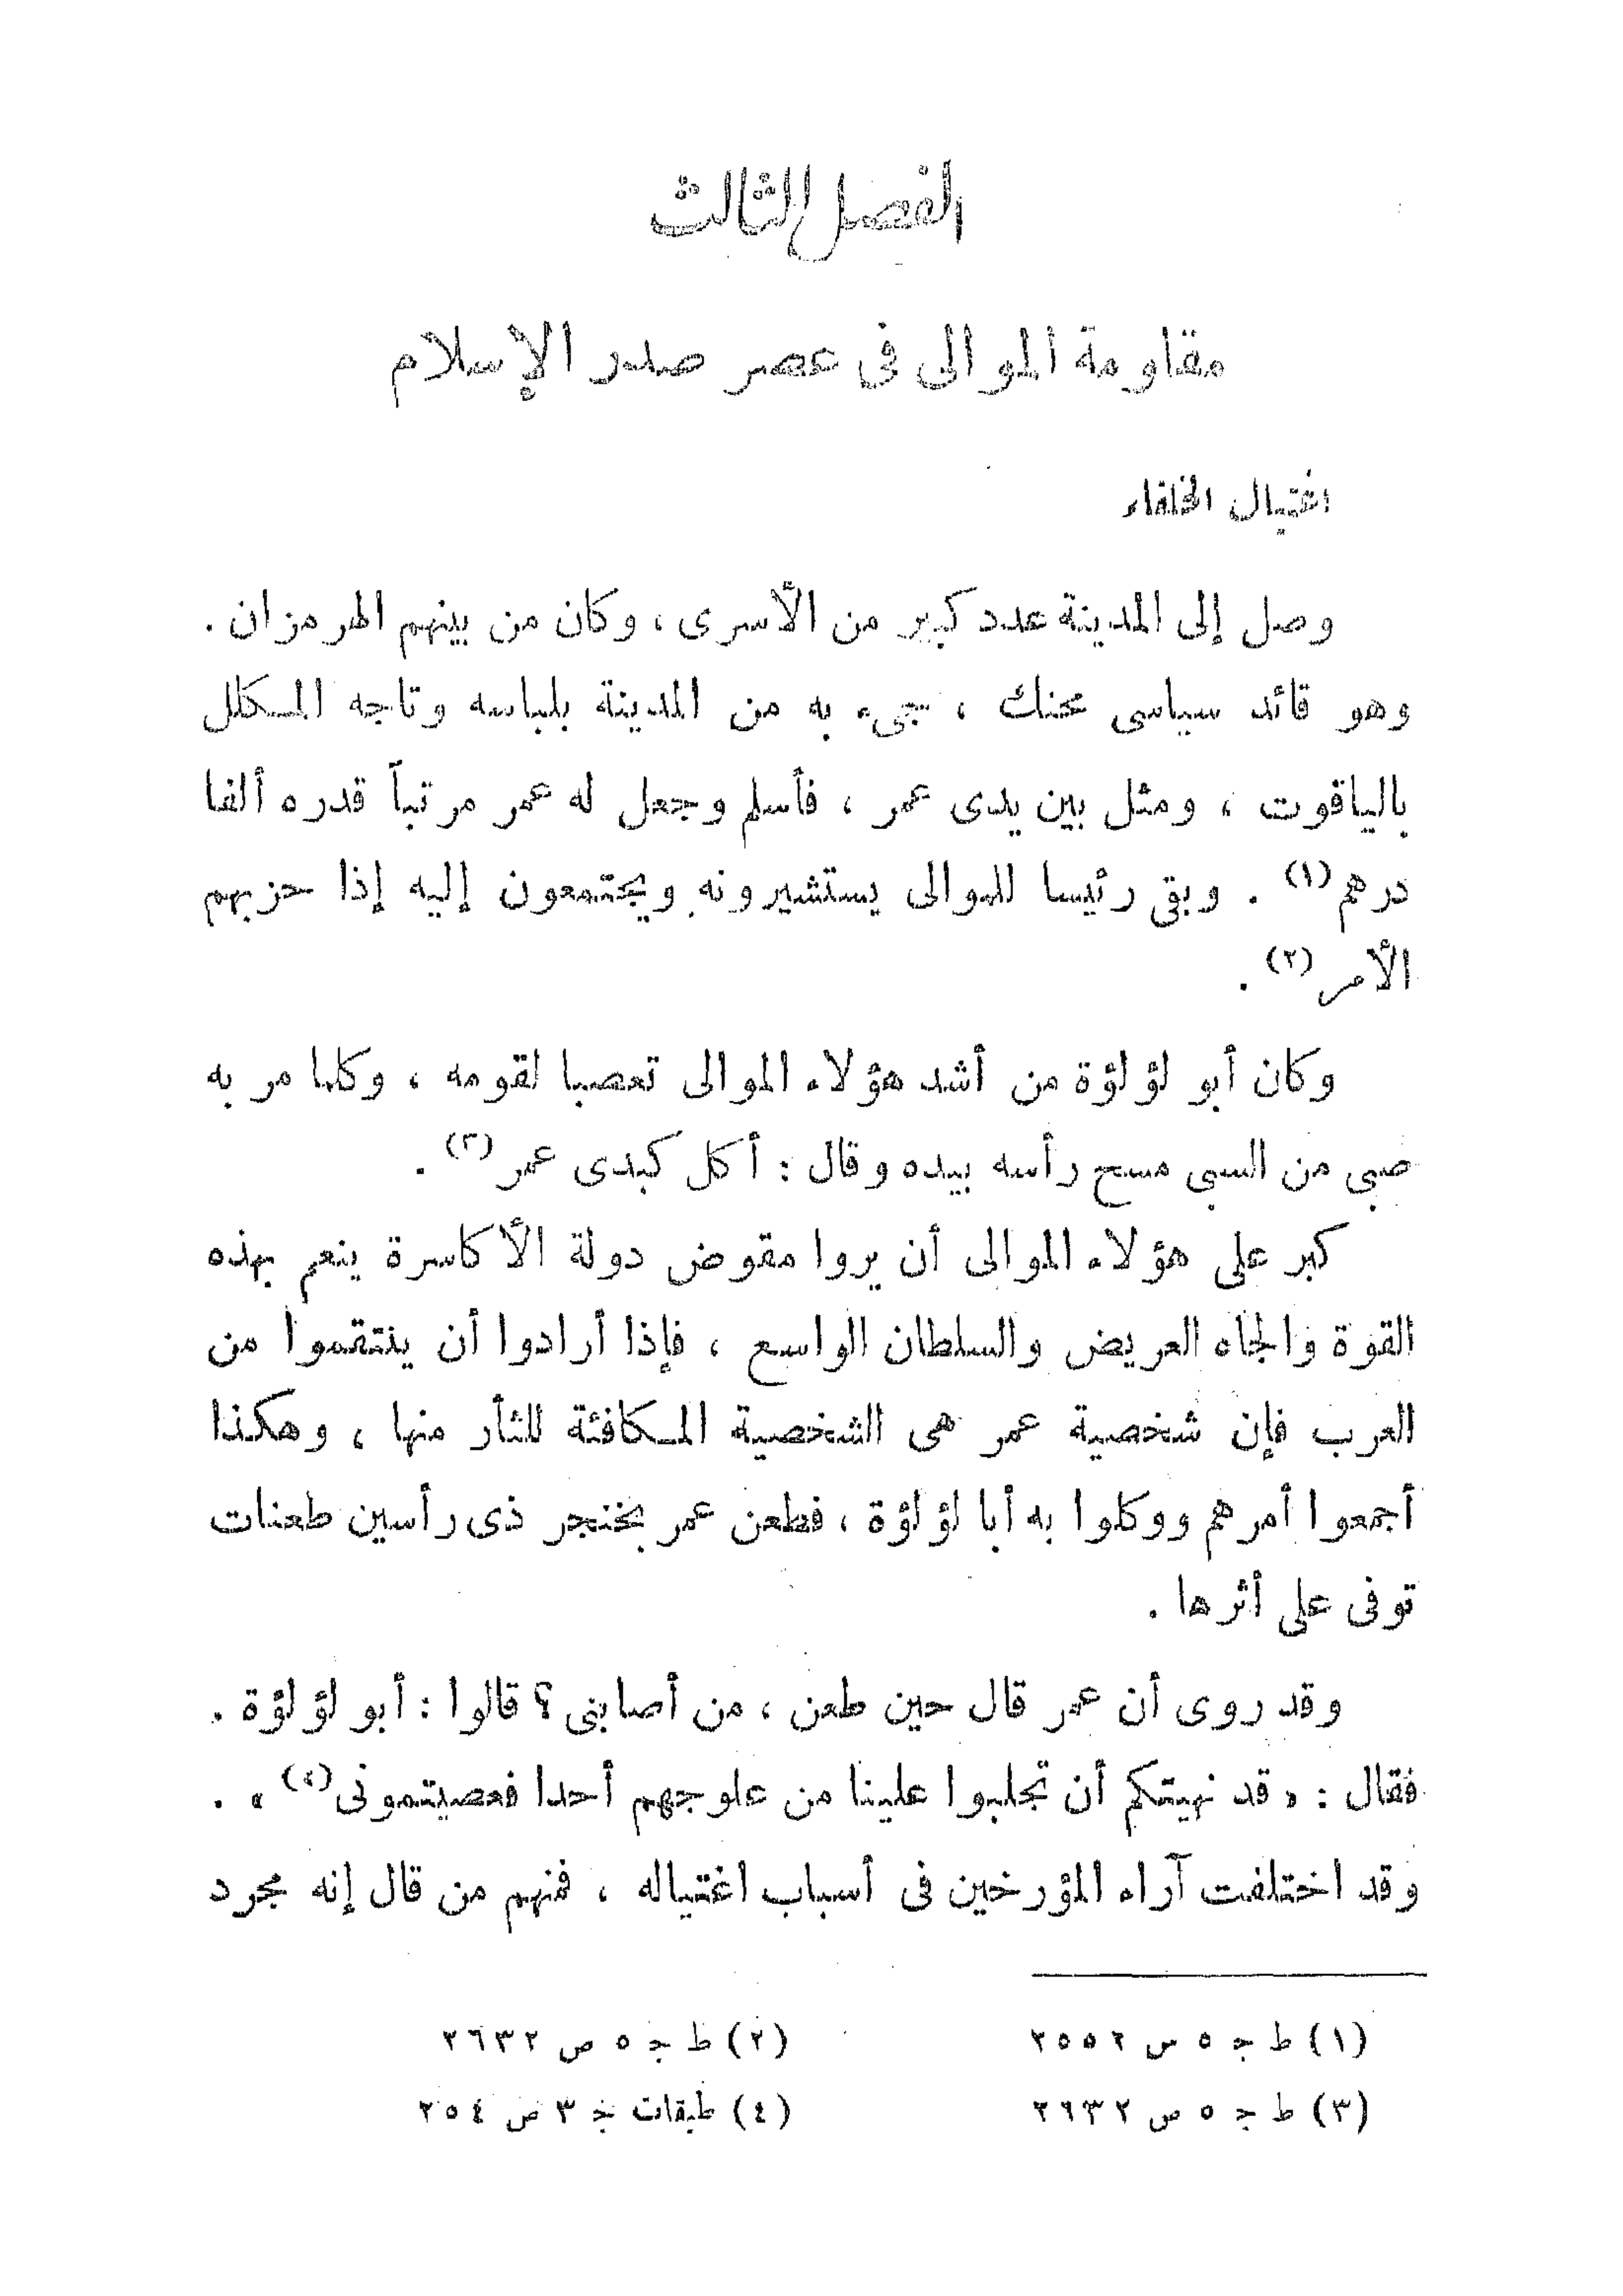 الفصل الثالث
مقاومة الموالى فى عصر صدر الإسلام
اغتيال الخلفاء
وصل إلى المدينة عدد كبير من الأسرى ، وكان من بينهم الهرمزان .
وهو قائد سياسى محنك ، جىء به من المدينة بلباسه وتاجه المكلل
بالياقوت ، ومثل بين يدى عمر ، فأسلم وجعل له عمر مرتباً قدره ألفا
درهم (١) . وبقى رئيسا للموالى يستشيرونه ويجتمعون إليه إذا حزبهم
الأمر (٢) .
وكان أبو لؤلؤة من أشد هؤلاء الموالى تعصبا لقومه ، وكلما مر به
صبى من السبى مسح رأسه بيده وقال : أكل كبدى عمر (٣) .
كبر على هؤلاء الموالى أن يروا مقوض دولة الأكاسرة ينعم بهذه
القوة والجاه العريض والسلطان الواسع ، فإذا أرادوا أن ينتقموا من
العرب فإن شخصية عمر هى الشخصية المكافئة للثأر منها ، وهكذا
أجمعوا أمرهم ووكلوا به أبا لؤلؤة ، فطعن عمر بخنجر ذى رأسين طعنات
توفى على أثرها .
وقد روى أن عمر قال حين طعن ، من أصابنى ؟ قالوا : أبو لؤلؤة .
فقال : « قد نهيتكم أن تجلبوا علينا من علوجهم أحدا فعصيتمونى (٤) » .
وقد اختلفت آراء المؤرخين فى أسباب اغتياله ، فمنهم من قال إنه مجرد
(١) ط ج ٥ ص ٢٥٥٢
(٢) ط ج ٥ ص ٢٦٣٢
(٣) ط ج ٥ ص ٢٦٣٢
(٤) طبقات ج ٣ ص ٢٥٤